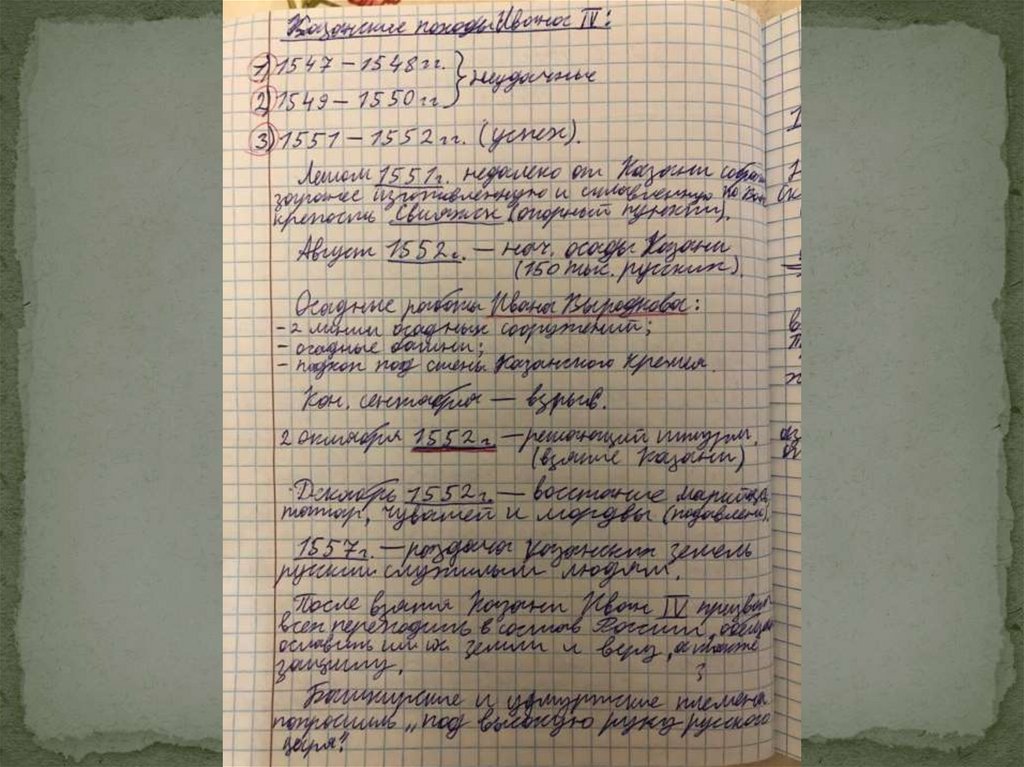 Казанские походы Ивана IV:
1) 1547 – 1548 гг.
неудачные
2) 1549 – 1550 гг
3) 1551 – 1552 гг. (успех).
Летом 1551 г. недалеко от Казани собрали
заранее изготовленную и сплавленную по
крепость Свияжск (опорный пункт).
Август 1552 г. – нач. осады Казани
(150 тыс. русских).
Осадные работы Ивана Выродкова:
- 2 линии осадных сооружений;
- осадные башни;
- подкоп под стены Казанского Кремля.
Кон. сентября – взрыв.
2 октября 1552 г. – решающий штурм.
(взятие Казани)
Декабрь 1552 г. – восстание
татар, чувашей и мордвы (подавлен).
1557 г. – раздача Казанских земель
русским служилым людям.
После взятия Казани Иван IV призвал
всех переходить в состав России,
оставить им их земли и веру, а также
защиту. ?
Башкирские и удмуртские племена
попросились „под высокую руку русского
царя".